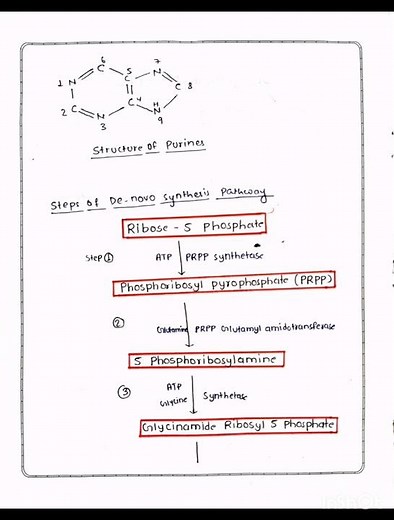 6
1 N C 5 C N 7
C 8
2 C N C 4 H N
3 9
Structure of Purines
Steps of De-novo synthesis Pathway
Ribose - 5 Phosphate
Step ① ATP PRPP synthetase
Phosphoribosyl pyrophosphate (PRPP)
② Glutamine PRPP Glutamyl amidotransferase
5 Phosphoribosylamine
③ ATP
Glycine Synthetase
Glycinamide Ribosyl 5 Phosphate